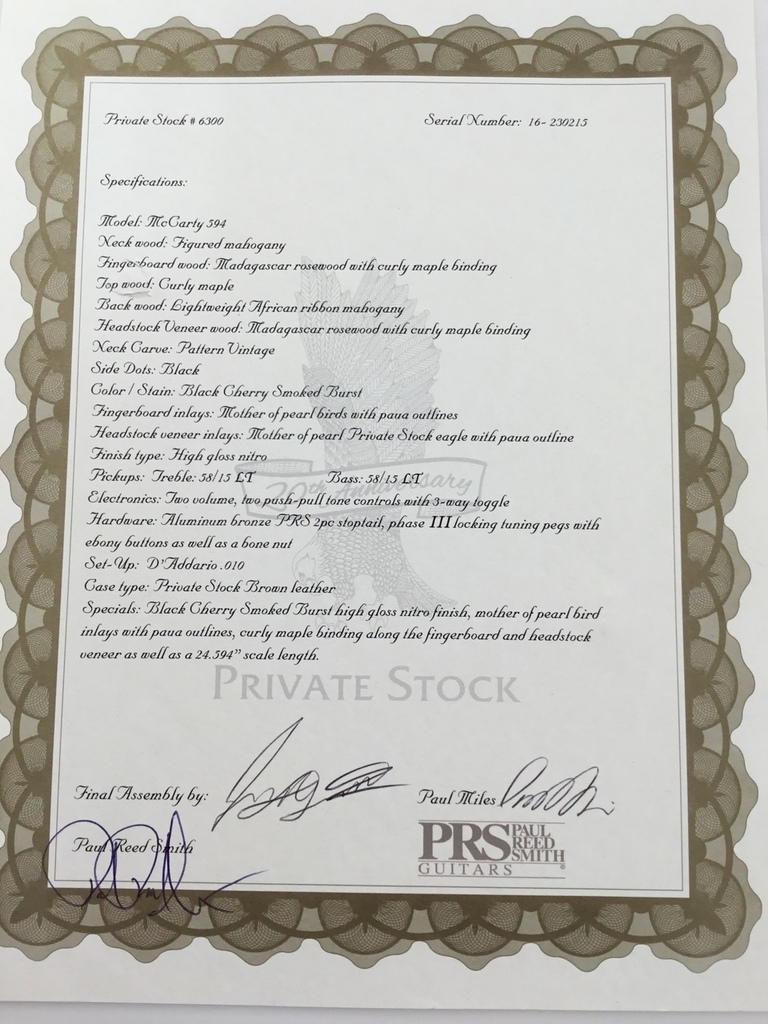 Private Stock # 6300 Serial Number: 16- 230215
Specifications:
Model: McCarty 594
Neck wood: Figured mahogany
Fingerboard wood: Madagascar rosewood with curly maple binding
Top wood: Curly maple
Back wood: Lightweight African ribbon mahogany
Headstock Veneer wood: Madagascar rosewood with curly maple binding
Neck Carve: Pattern Vintage
Side Dots: Black
Color / Stain: Black Cherry Smoked Burst
Fingerboard inlays: Mother of pearl birds with paua outlines
Headstock veneer inlays: Mother of pearl Private Stock eagle with paua outline
Finish type: High gloss nitro
Pickups: Treble: 58/15 LT Bass: 58/15 LT
20th Anniversary
Electronics: Two volume, two push-pull tone controls with 3-way toggle
Hardware: Aluminum bronze PRS 2pc stoptail, phase III locking tuning pegs with
ebony buttons as well as a bone nut
Set-Up: D'Addario .010
Case type: Private Stock Brown leather
Specials: Black Cherry Smoked Burst high gloss nitro finish, mother of pearl bird
inlays with paua outlines, curly maple binding along the fingerboard and headstock
veneer as well as a 24.594” scale length.
PRIVATE STOCK
Final Assembly by: Paul Miles
Paul Reed Smith
PRS PAUL
REED
SMITH
GUITARS